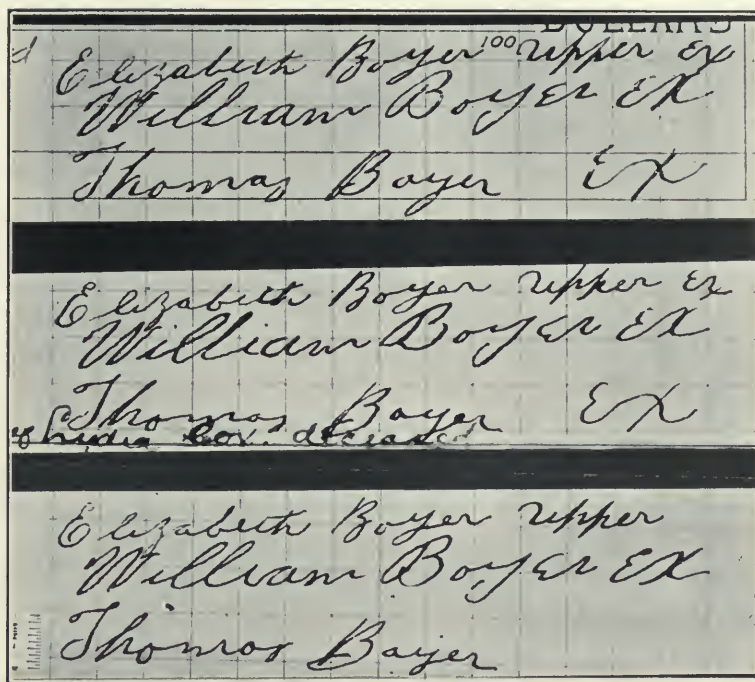 DOLLARS
d
Elizabeth Boyer 100 Upper Ex
William Boyer EX
Thomas Boyer EX
Elizabeth Boyer Upper Ex
William Boyer EX
Thomas Boyer EX
of Lydia Cox. deceased
Elizabeth Boyer Upper
William Boyer EX
Thomas Boyer